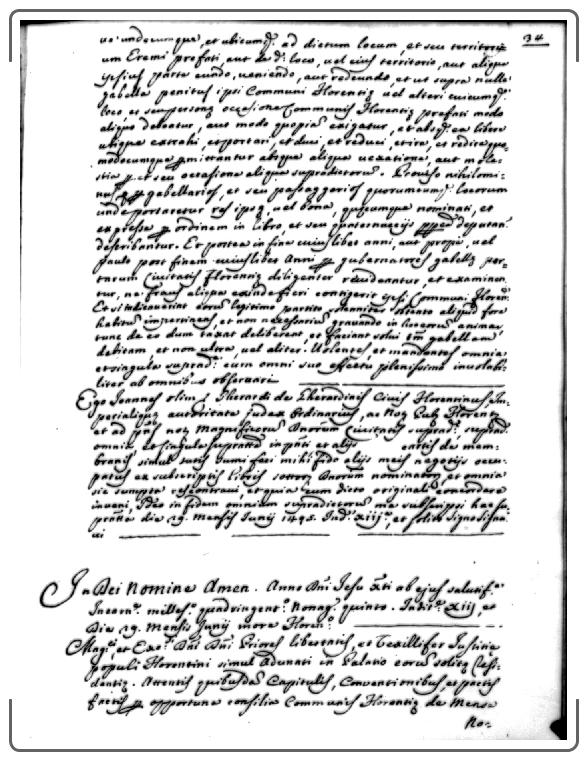 34
uo' undecumque, et ubicumq; ad dictum locum, et seu territori-
um Eremi prefati, aut de dº. loco, vel eius territorio, aut aliqua
ipsius parte eundo, veniendo, aut redeundo, et ut supra nulla
gabella penitus ipsi Communi Florentię vel alteri cuicumq;
loco et seu personę occasione Communis Florentię prefati modo
aliquo debeatur, aut modo quopiam exigatur, et absq; ea libere
utique extrahi, et portari, et duci, et reduci, et ire, et redire quo-
modocumque pmittantur absque aliqua uexatione, aut mole-
stia p. et seu occasione aliqua supradictorum. Prouiso nihilomi-
nus gabellarios, et seu passaggerios quorumcumq; locorum
unde portaretur res ipsę, vel bona, quęcumque nominati, et
expresse p ordinem in libro, et seu quaternuccijs deputan.
describantur. Et postea in fine cuiuslibet anni, aut propie, vel
paulo post finem cuiuslibet Anni p gubernatores gabellę por-
tarum Ciuitatis Florentię diligenter reuideantur, et examinen
tur, ne fraus aliqua exinde fieri contigerit ipsi Communi Floren:
Et si iudicauerint eorum legitimo partito obtento aliquid fore
habitum impertinens, et non necessarium grauando in hoc eorum animas
tunc de eo dum taxat deliberent, et faciant solui tm gabellam
debitam, et non ultra, vel aliter. Volentes, et mandantes omnia
et singula supradª. cum omni suo effectu plenissime inuiolabi-
liter ab omnibus obseruari
Ego Joannes olim s. Gherardi de Gherardinis Ciuis Florentinus, Im-
perialiquę auctoritate judex ordinarius, ac Notę Pubę Florentę
et ad pns notę Magnificorę Dnorum Ciuitatis supradę supradª.
omnia et singula suprattª in pnti et alijs cartis de mem-
branis simul sutis cum feci mihi fido alijs meis negotijs occu-
patus ex subscriptis libris Dnorum nominatorę et omnia
sic sumpta rescontraui, et quia cum dicto originali concordare
inueni, Ideo in fidem omnium supradictorum me subscripsi hac su-
prattª die 29. Mensis Junij 1495. Indę xiijª, et solito signo signa
ui
In Dei Nomine Amen. Anno Dni Jesu Xti ab ejus salutifª.
Incarnę. millesº. quadringentº. Nonagº. quinto. Indieº. xiij, et
Die 29. Mensis Junij more Florenº.
Magci, et Excsi. Dni Dni Priores libertatis, et Vexillifer Justitie
populi Florentini simul adunati in Palatio eorum solitę Resi-
dentię. Attentis quibusdę Capitulis, Conuentionibus, et pactis
factis p opportuna consilia Communis Florentię de Mense
No-